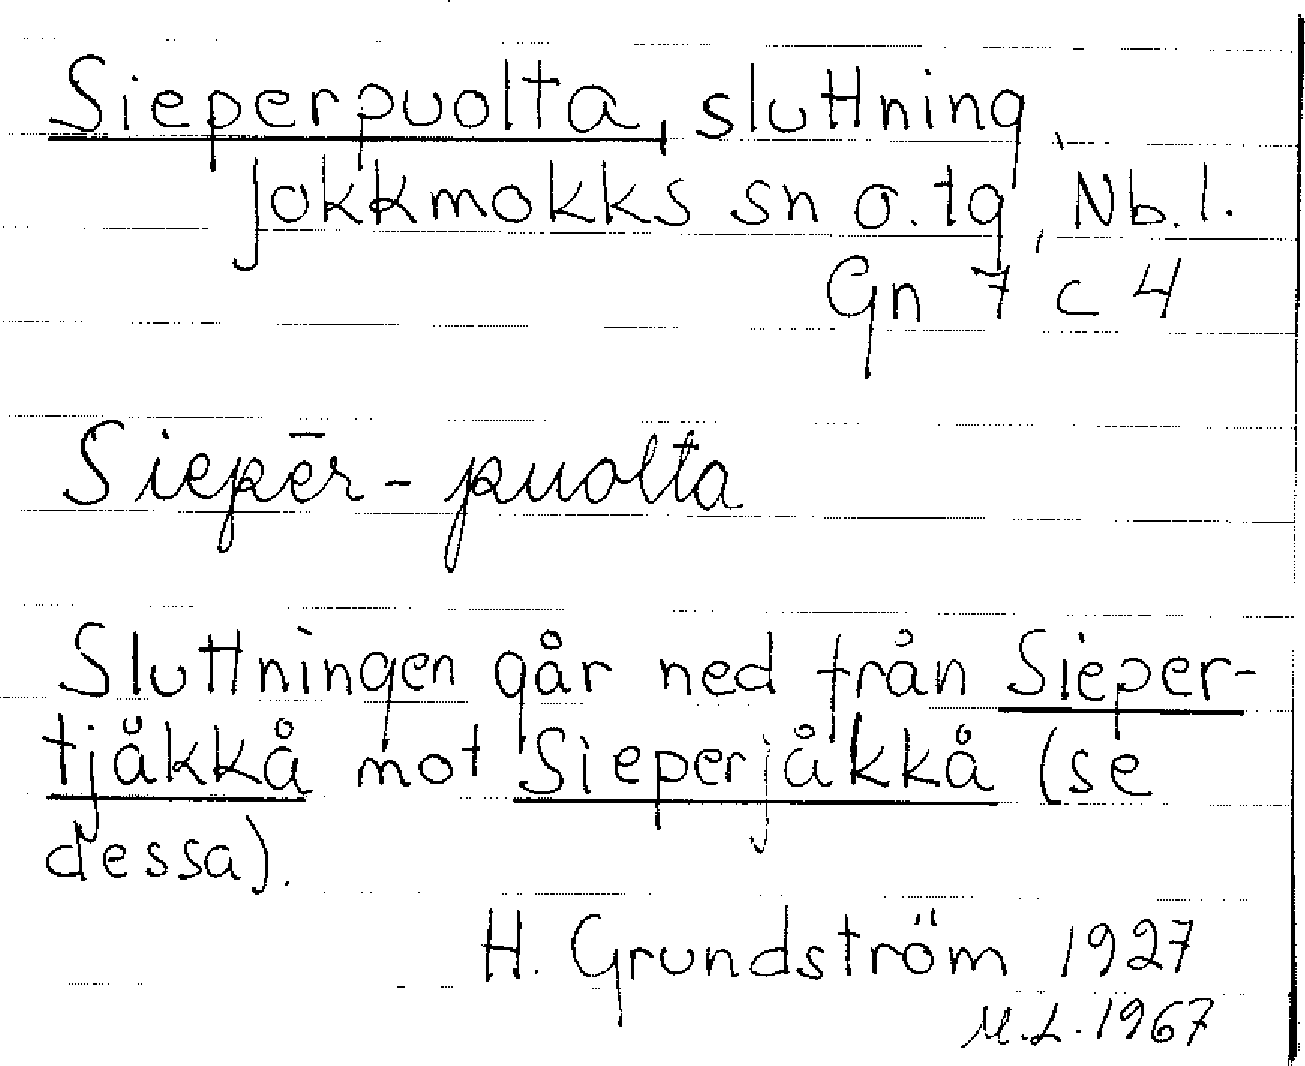 Sieperpuolta, sluttning,
Jokkmokks sn o. tg, Nb. l.
Gn 7 c 4
Siepēr-puolta
Sluttningen går ned från Sieper-
tjåkkå mot Sieperjåkkå (se
dessa).
H. Grundström 1927
M.L. 1967